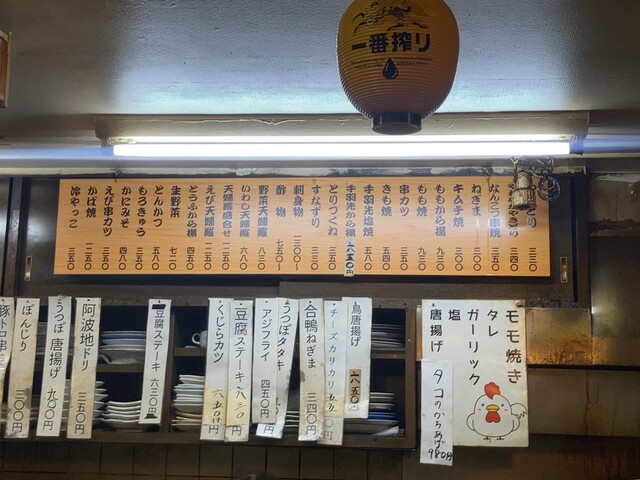 一番搾り
とり 三三〇
やきとり 三四〇
なんこつ串焼 三五〇
ねぎま 三〇〇
キムチ焼 三〇〇
ももから揚 九三〇
もも焼 九三〇
串カツ 三五〇
きも焼 五四〇
手羽先塩焼 五八〇
手羽先から揚 六五〇円
とりつくね 三五〇
すなずり 三三〇
刺身物 三〇〇〜
酢物 七五〇〜
野菜天婦羅 八三〇
いわし天婦羅 六八〇
天婦羅盛合せ 一二五〇
えび天婦羅 一二五〇
とうふから揚 四五〇
生野菜 七二〇
とんかつ 八五〇
もろきゅう 三五〇
かにみそ 四八〇
えび串カツ 三五〇
かば焼 一二五〇
冷やっこ 三三〇
モモ焼き
タレ
ガーリック
塩
唐揚げ
タコのからあげ
980円
鳥唐揚げ 六五〇円
チーズカリカリ 五五〇円
合鴨ねぎま 三四〇円
うつぼタタキ
アジフライ 四五〇円
豆腐ステーキ 六三〇円
くじらカツ 六五〇円
豆腐ステーキ 六三〇円
阿波地ドリ 三五〇円
うつぼ唐揚げ 九〇〇円
ぼんじり 三〇〇円
豚トロ串